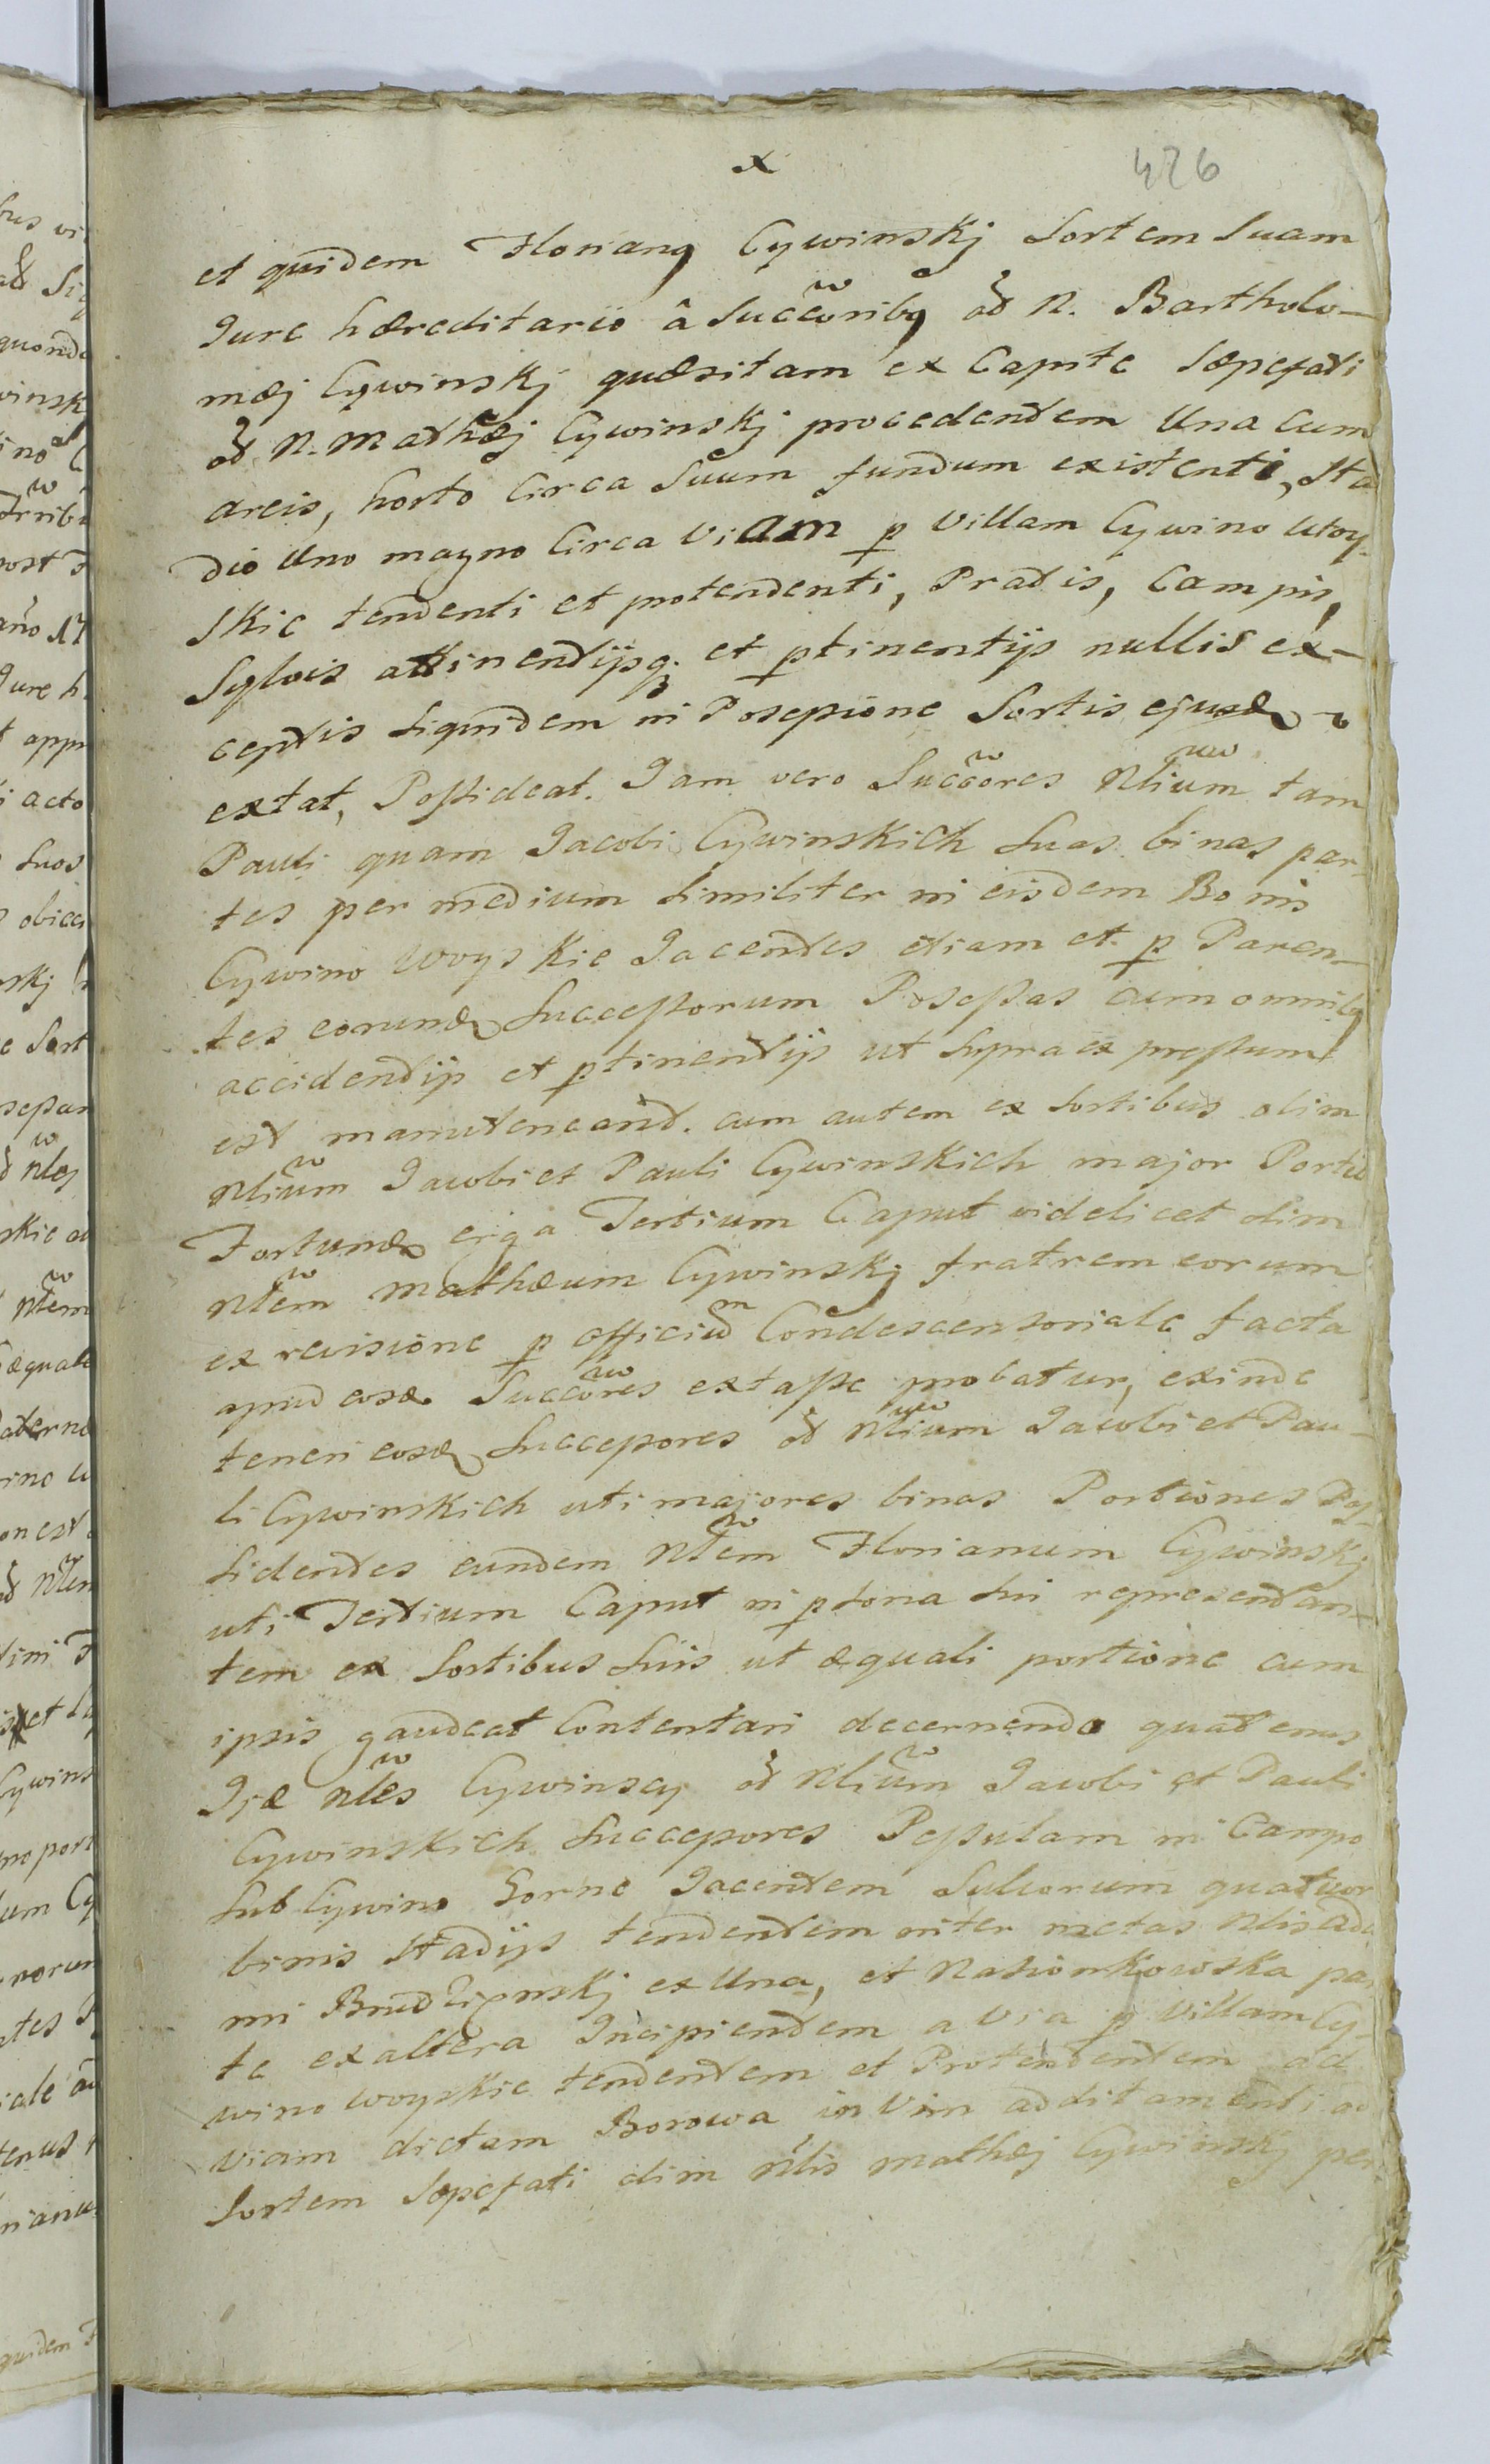 x
426
et quidem Florianq Cywinskj Sortem Suam
Jure hæreditario â Succõribq õd N. Bartholo-
mæj Cywinskj quæsitam ex Capite Sæpefati
õd N. Mathæj Cywinskj procedentem Una Cum
areis, horto Circa Suum fundum existenti, Sta
dio Uno magno Circa Viam p Villam Cywino Woy-
skie tendenti et protendenti, Pratis, Campis,
Sylvis attinentijsq. et ptinentijs nullis ex-
ceptis Siquidem in Possessione Sortis ejusd
extat, Possideat. Jam vero Succõres Nlium tam
Pauli quam Jacobi Cywinskich Suas binas par-
tes per medium Similiter in eisdem Bonis
Cywino Woyskie Jacentes etiam et p Paren-
tes eorund Successorum Possessas cum omnibq
accidentijs et ptinentijs ut Supra expressum
est manuteneant. cum autem ex Sortibus olim
Nlium Jacobi et Pauli Cywinskich major Portio
Fortunæ erga Tertium Caput videlicet olim
Nlem Mathæum Cywinskj fratrem eorum
ex revisione p officium Condescensoriale facta
apud eosd. Succõres extasse probatur, exinde
teneri eosd Successores õd Nlium Jacobi et Pau-
li Cywinskich uti majores binas Portiones Pos-
sidentes eundem Nlem Florianum Cywinskj
uti Tertium Caput in psona Sui representan-
tem ex Sortibus Suis ut æquali portione cum
ipsis gaudeat Contentari decernendo quatenus
Nles Cywinscy õd Nlium Jacobi et Pauli
Cywinskich Successores Pessulam in Campo
Sub Cywino Gorne Jacentem Sulcorum quatuor
binis Stadijs tendentem inter metas Nlis Ada
mi Brudzinskj ex Una, et Nasionkowska par
te ex altera Incipientem a Via p Villam Cy-
wino Woyskie tendentem et Protendentem ad
viam dictam Borowa in Vim additamenti ad
Sortem Sæpefati olim Nlis Mathæj Cywinskj per-